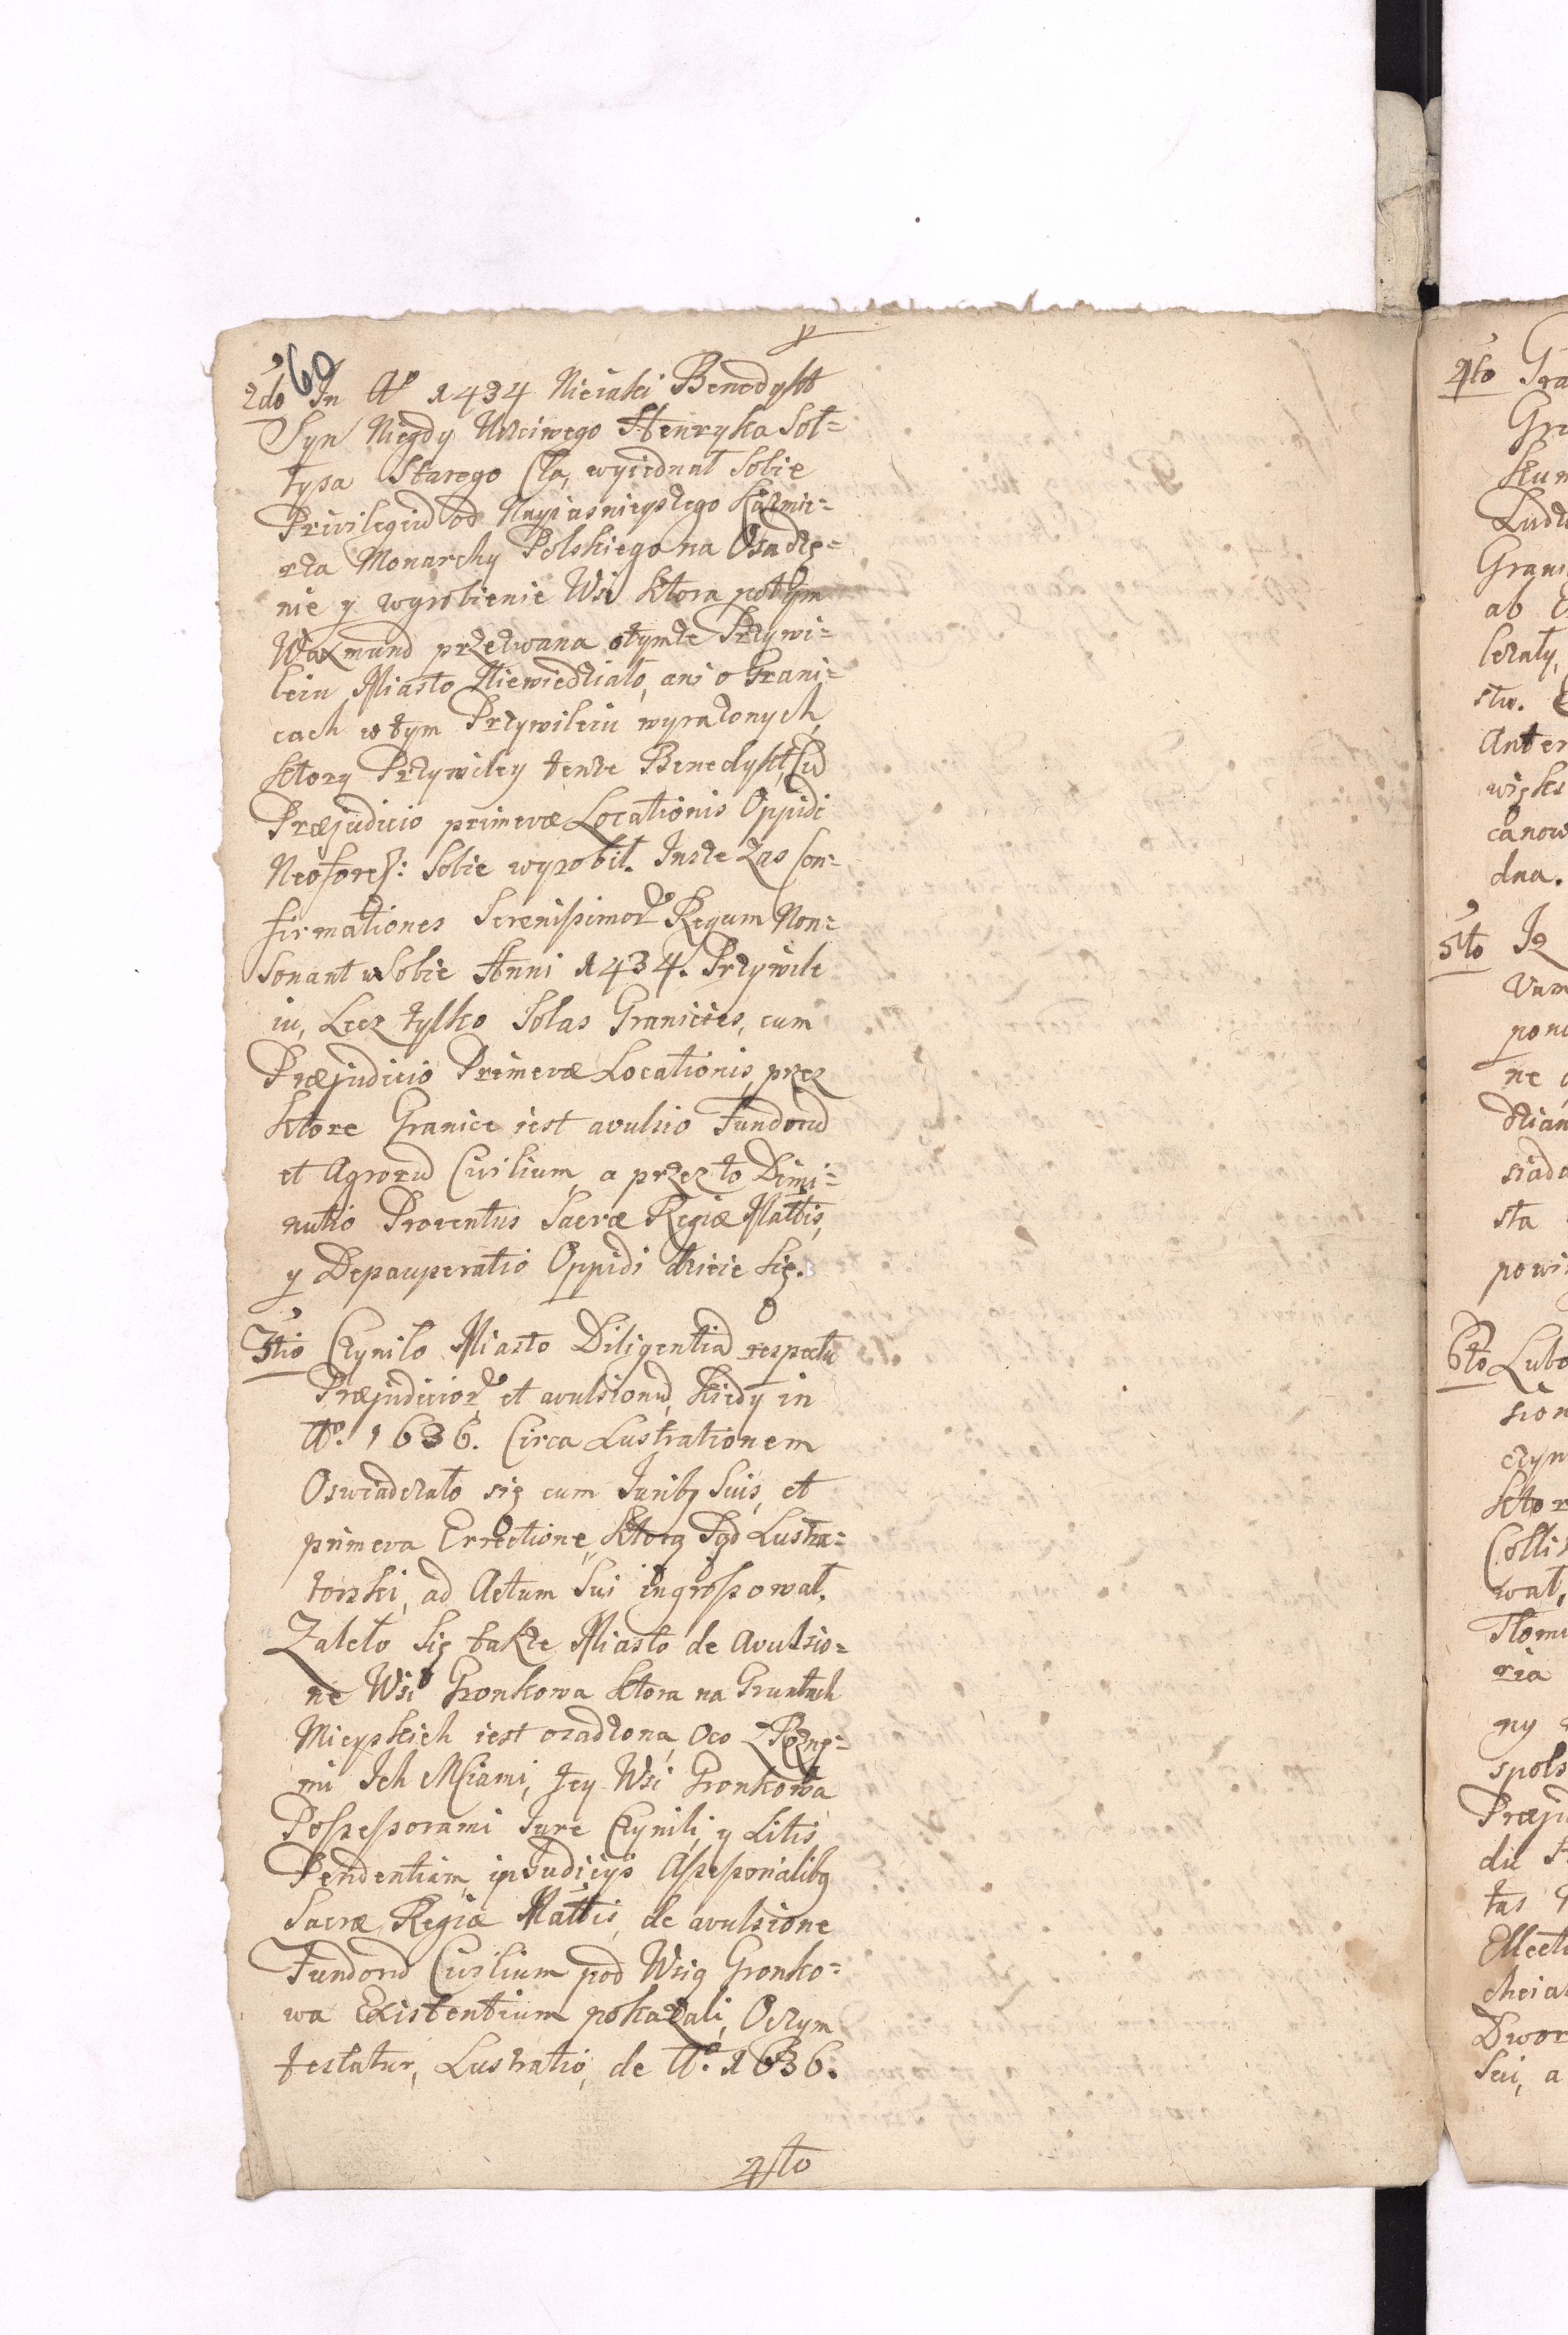 60
2do In Ao 1434 Nieiaki Benedykt
Syn Niegdy Uczciwego Henryka Soł=
tysa Starego Cła, wyiednał Sobie
Privilegiu od Nayiasnieyszego Kazmie=
rza Monarchy Polskiego na Osadze=
nie y wyrobienie Wsi Ktora potym
Waxmund przezwana otymze Przywi=
leiu Miasto Niewiedziało, ani o Grani=
cach w tym Przywileiu wyrazonych,
Ktory Przywiley tenze Benedykt, Cu
Præjudicio primevæ Locationis Oppidi
Neoforeſ: Sobie wyrobił. Insze Zas Con=
firmationes Serenissimor Regum Non=
Sonant w Sobie Anni 1434. Przywile
iu, Lecz tylko Solas Granicies, cum
Præjudicio Primevæ Locationis, przez
Ktore Granice iest avulsio Fundoru
et Agroru Civilium, a przez to Dimi=
nutio Proventus Sacræ Regiæ Mattis,
y Depauperatio Oppidi dzieie Się.
3tio Czyniło Miasto Diligentia respectu
Præjudicior et avulsionu, kiedy in
Ao. 1636. Circa Lustrationem
Oswiadczało się cum Juribq Suis, et
primeva Errectione, Ktorą Sąd Lustra=
torski, ad Actum Sui ingrossował.
Zaleło Się także Miasto de Avulsio=
ne Wsi Gronkowa Ktora na Gruntach
Mieyskich iest osadzona, Oco z Rozne=
mi Ich Mciami, Jey Wsi Gronkowa
Possessorami Jure Czynili, y Litis
Pendentiam, in Judicijs Assessorialibq
Sacræ Regiæ Mattis, de avulsione
Fundoru Civilium pod Wsią Gronko=
wa Existentium pokazali, Oczym
testatur, Lustratio, de Ao. 1636.
4to
4to
Gra
Gra
Ludz
Grani
ab
lezały,
stw.
Anter
więks
canow
dna.
5to
Vam
pon
ne
dzian
siada
sta
powi
6to Lubo
sion
czyn
Ktor
Colli
wał,
Tłomi
ria
ny
spols
Præju
du
tas
Elect
chcia
Dwor
Sui, a